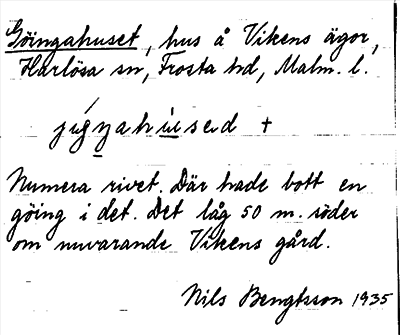 Göingahuset, hus å Vikens ägor,
Harlösa sn, Frosta hd, Malm. l.
Numera rivet. Där hade bott en
göing i det. Det låg 50 m. söder
om nuvarande Vikens gård.
Nils Bengtsson 1935